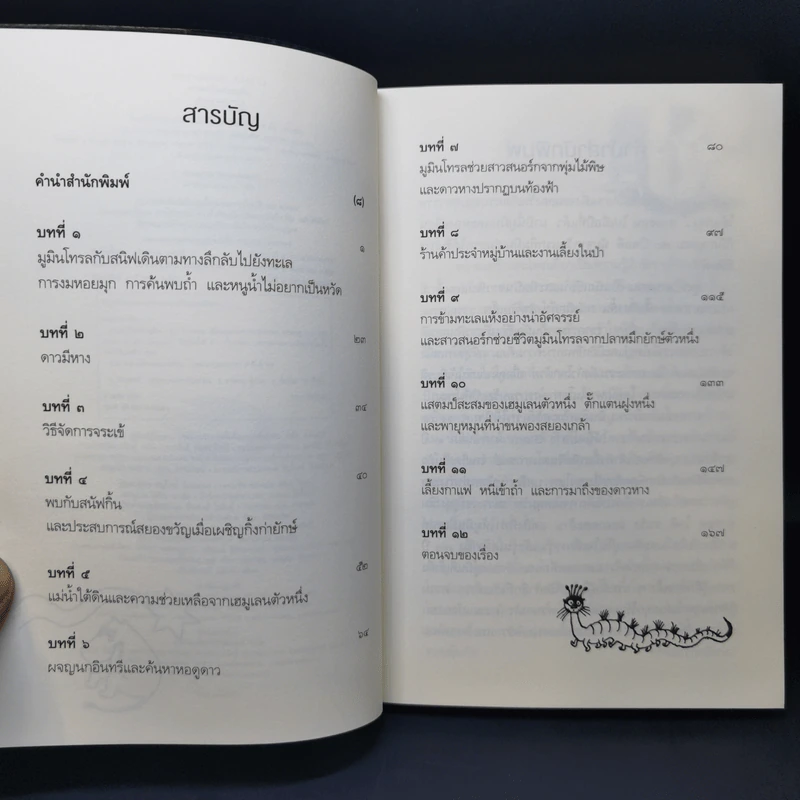 สารบัญ
คำนำสำนักพิมพ์
(๘)
บทที่ ๑
๑
มูมินโทรลกับสนิฟเดินตามทางลึกลับไปยังทะเล
การงมหอยมุก การค้นพบถ้ำ และหนูน้ำไม่อยากเป็นหวัด
บทที่ ๒
๒๓
ดาวมีหาง
บทที่ ๓
๓๔
วิธีจัดการจระเข้
บทที่ ๔
๔๐
พบกับสนัฟกิ้น
และประสบการณ์สยองขวัญเมื่อเผชิญกิ้งก่ายักษ์
บทที่ ๕
๕๒
แม่น้ำใต้ดินและความช่วยเหลือจากเฮมูเลนตัวหนึ่ง
บทที่ ๖
๖๔
ผจญนกอินทรีและค้นหาหอดูดาว
บทที่ ๗ ๘๐
มูมินโทรลช่วยสาวสนอร์กจากพุ่มไม้พิษ
และดาวหางปรากฏบนท้องฟ้า
บทที่ ๘ ๙๗
ร้านค้าประจำหมู่บ้านและงานเลี้ยงในป่า
บทที่ ๙ ๑๑๕
การข้ามทะเลแห้งอย่างน่าอัศจรรย์
และสาวสนอร์กช่วยชีวิตมูมินโทรลจากปลาหมึกยักษ์ตัวหนึ่ง
บทที่ ๑๐ ๑๓๓
แสตมป์สะสมของเฮมูเลนตัวหนึ่ง ตั๊กแตนฝูงหนึ่ง
และพายุหมุนที่น่าขนพองสยองเกล้า
บทที่ ๑๑ ๑๔๗
เลี้ยงกาแฟ หนีเข้าถ้ำ และการมาถึงของดาวหาง
บทที่ ๑๒ ๑๖๗
ตอนจบของเรื่อง